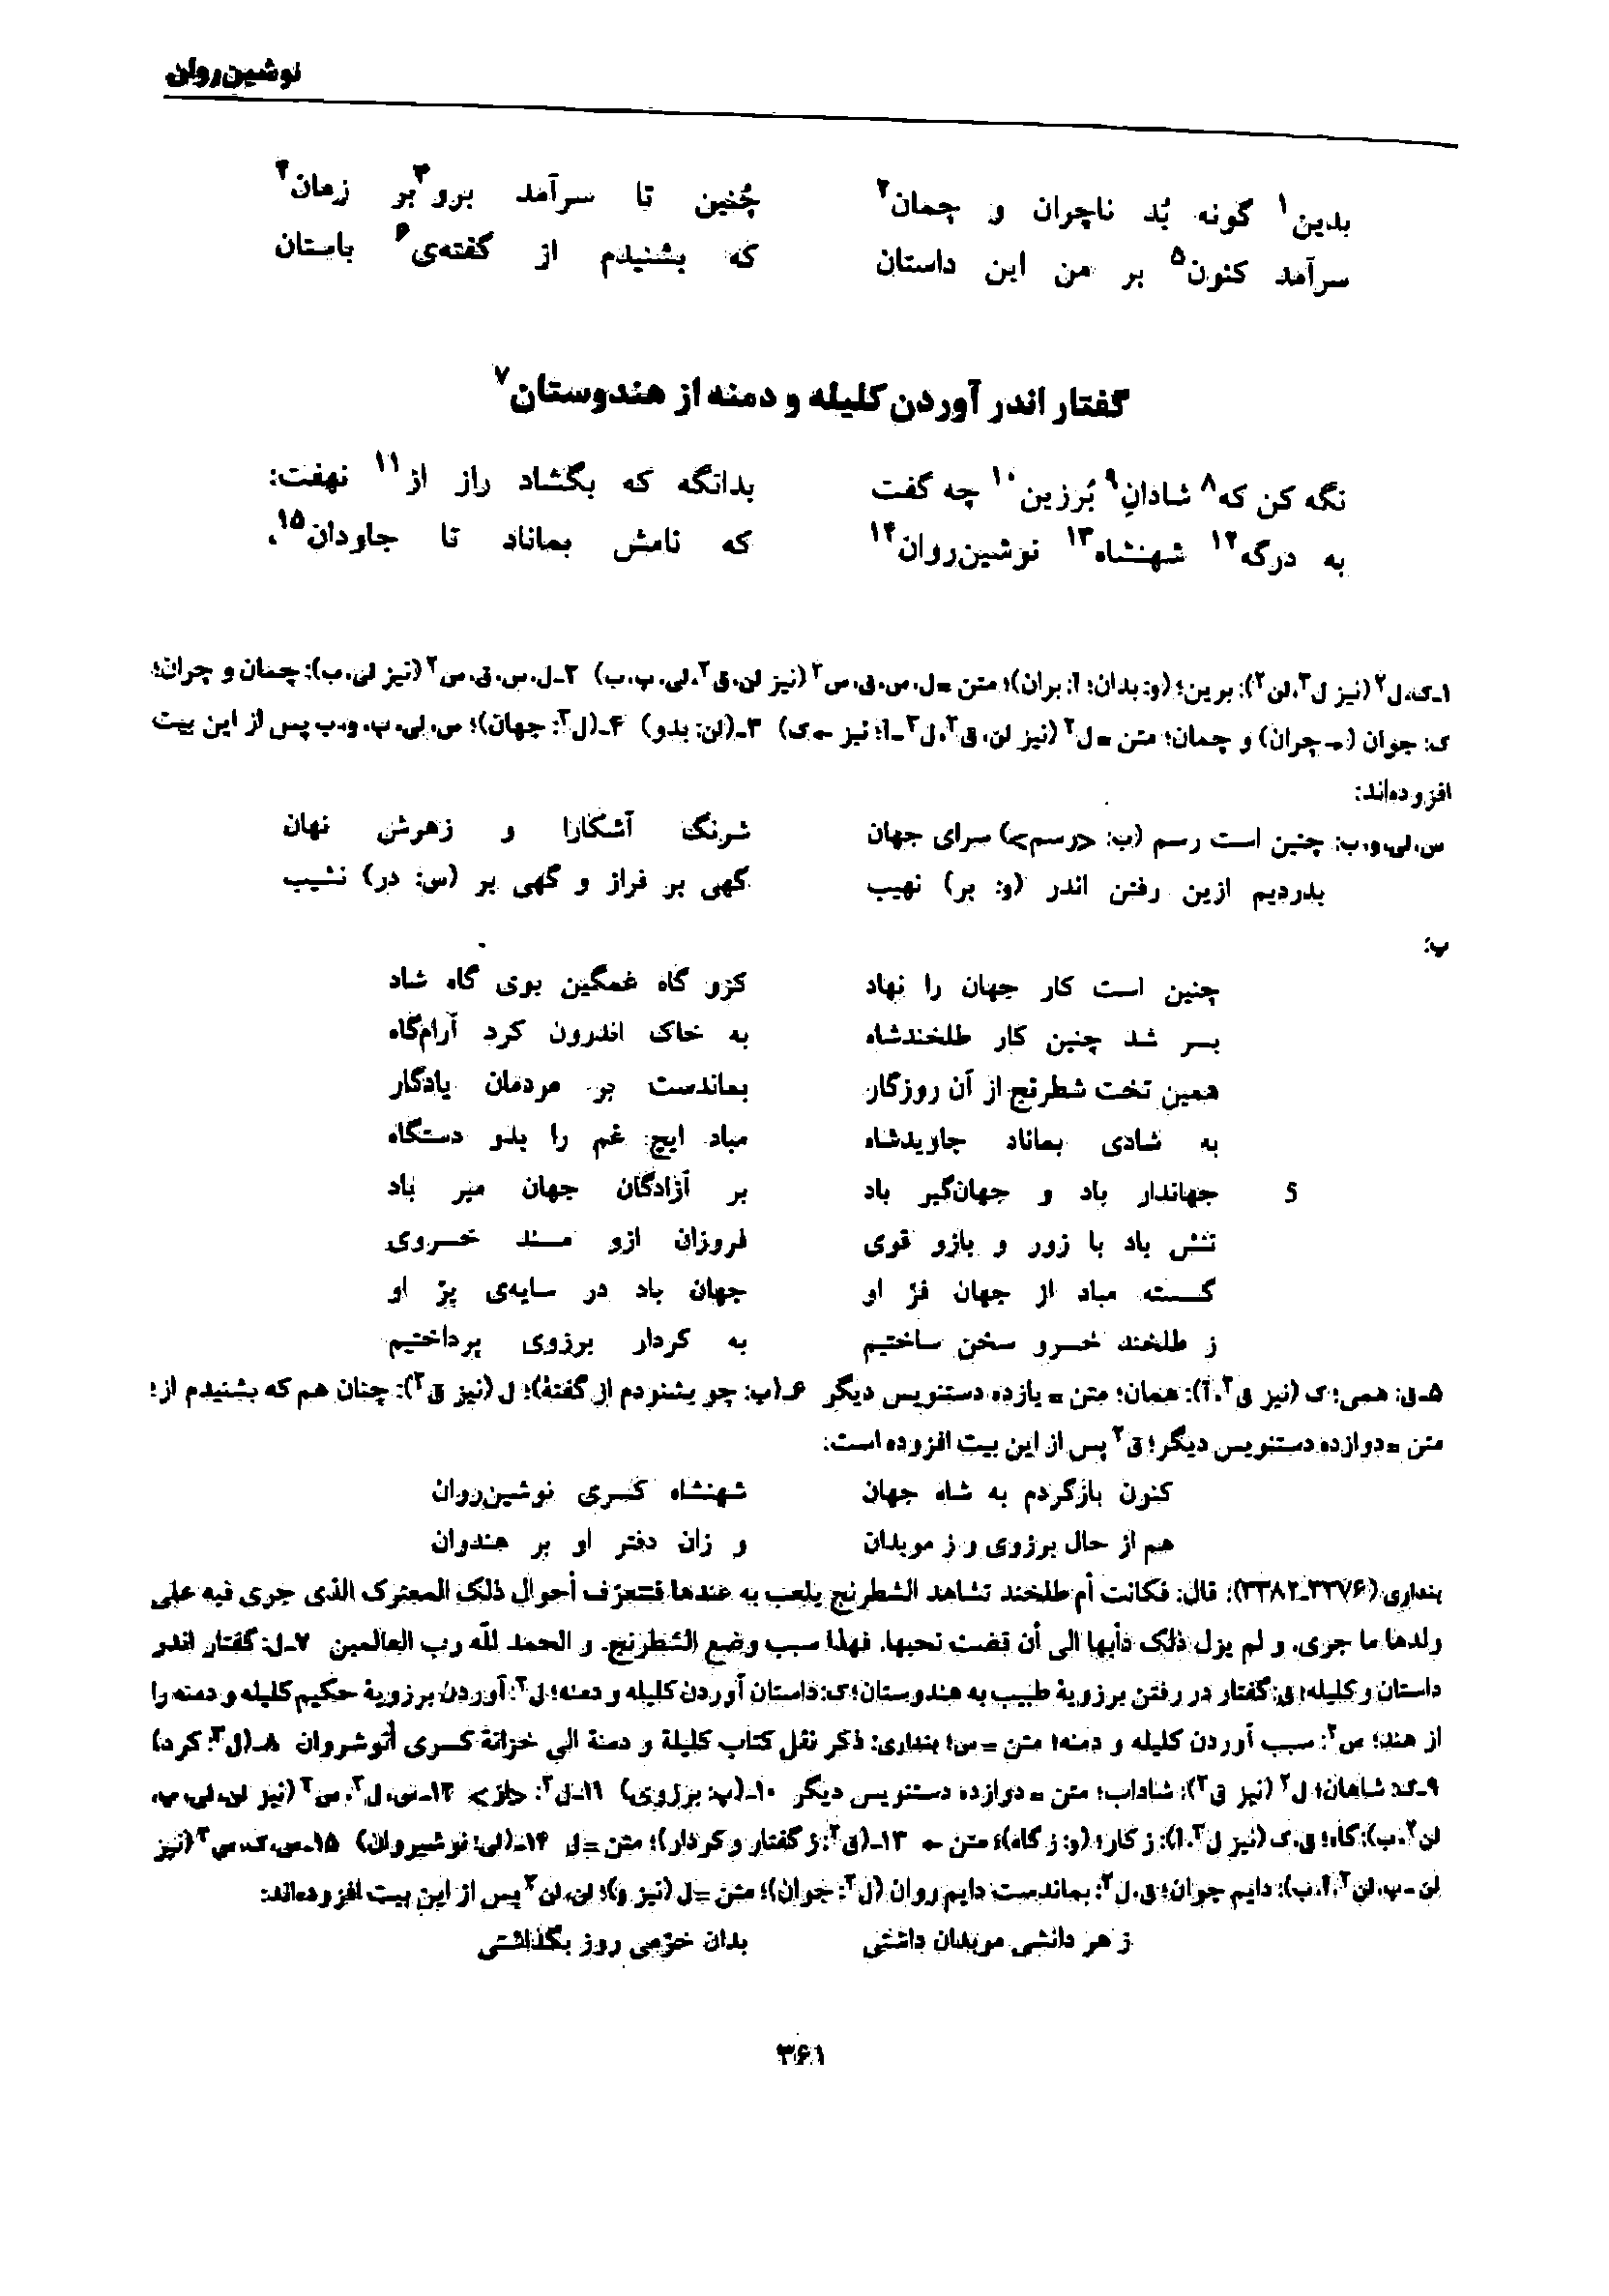 نوشین‌روان
بدین۱ گونه بُد ناچران و چمان۲ چُنین تا سرآمد برو۳ بر زمان۴
سرآمد کنون۵ بر من این داستان که بشنیدم از گفته‌ی۶ باستان
گفتار اندر آوردن کلیله و دمنه از هندوستان۷
نگه کن که۸ شادانِ۹ بُرزین۱۰ چه گفت بدانگه که بگشاد راز از۱۱ نهفت:
به درگه۱۲ شهنشاه۱۳ نوشین‌روان۱۴ که نامش بماناد تا جاودان۱۵،
۱ـ ک، ل۲ (نیز ل۳، لن۲): برین؛ (و: بدان؛ آ: بران)؛ متن = ل، س، ق، س۲ (نیز لن، ق۲، لی، پ، ب) ۲ـ ل، س، ق، س۲ (نیز لی، ب): چمان و چران؛
ک: جوان (← چران) و چمان؛ متن = ل۲ (نیز لن، ق۲، ل۳ـ آ؛ نیز ← ک) ۳ـ (لن: بدو) ۴ـ (ل۳: جهان)؛ س، لی، پ، و، ب پس از این بیت
افزوده‌اند:
س، لی، و، ب: چنین است رسم (ب: <رسم>) سرای جهان شرنگ آشکارا و زهرش نهان
بدردیم ازین رفتن اندر (و: بر) نهیب گهی بر فراز و گهی بر (س: در) نشیب
پ:
چنین است کار جهان را نهاد کزو گاه غمگین بوی گاه شاد
بسر شد چنین کار طلخندشاه به خاک اندرون کرد آرام‌گاه
همین تخت شطرنج از آن روزگار بماندست بر مردمان یادگار
به شادی بماناد جاویدشاه مباد ایچ غم را بدو دستگاه
5 جهاندار باد و جهان‌گیر باد بر آزادگان جهان میر باد
تنش باد با زور و بازو قوی فروزان ازو مسند خسروی
گسسته مباد از جهان فرّ او جهان باد در سایه‌ی پرّ او
ز طلخند خسرو سخن ساختیم به کردار برزوی پرداختیم
۵ـ ق: همی؛ ک (نیز ق۲، آ): همان؛ متن = یازده دستنویس دیگر ۶ـ (پ: چو بشنودم از گفتهٔ)؛ ل (نیز ق۲): چنان هم که بشنیدم از؛
متن = دوازده دستنویس دیگر؛ ق۲ پس از این بیت افزوده است:
کنون بازگردم به شاه جهان شهنشاه کسری نوشین‌روان
هم از حال برزوی و ز موبدان و زان دفتر او بر هندوان
بنداری (۳۳۷۶ـ۳۳۸۲): قال: فکانت أم طلخند تشاهد الشطرنج یلعب به عندها فتتعرّف أحوال ذلک المعترک الذی جری فیه علی
ولدها ما جری. و لم یزل ذلک دأبها الی أن قضت نحبها. فهذا سبب وضع الشطرنج. و الحمد لله رب العالمین ۷ـ ل: گفتار اندر
داستان و کلیله؛ ق: گفتار در رفتن برزویهٔ طبیب به هندوستان؛ ک: داستان آوردن کلیله و دمنه؛ ل۲: آوردن برزویهٔ حکیم کلیله و دمنه را
از هند؛ س۲: سبب آوردن کلیله و دمنه؛ متن = س؛ بنداری: ذکر نقل کتاب کلیلة و دمنة الی خزانة کسری أنوشروان ۸ـ (ل۳: کرد)
۹ـ ک: شاهان؛ ل۲ (نیز ق۲): شاداب؛ متن = دوازده دستنویس دیگر ۱۰ـ (پ: برزوی) ۱۱ـ ل۲: <از> ۱۲ـ س، ل۲، س۲ (نیز لن، لی، پ،
لن۲، ب): گاه؛ ق، ک (نیز ل۳، آ): ز کار؛ (و: ز گاه)؛ متن ← ۱۳ـ (ق۲: ز گفتار و کردار)؛ متن = ل ۱۴ـ (لی: نوشیروان) ۱۵ـ س، ک، س۲ (نیز
لن ـ پ، لن۲، آ، ب): دایم جوان؛ ق، ل۲: بماندست دایم روان (ل۳: جوان)؛ متن = ل (نیز و)؛ لن، لن۲ پس از این بیت افزوده‌اند:
ز هر دانشی موبدان داشتی بدان خرّمی روز بگذاشتی
۳۶۱